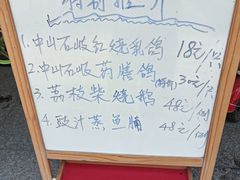 特别推介
1.中山石岐红烧乳鸽 18元/只
2.中山石岐药膳鸽 30元/只
3.荔枝柴烧鹅 48元/例
4.豉汁蒸鱼腩 48元/例